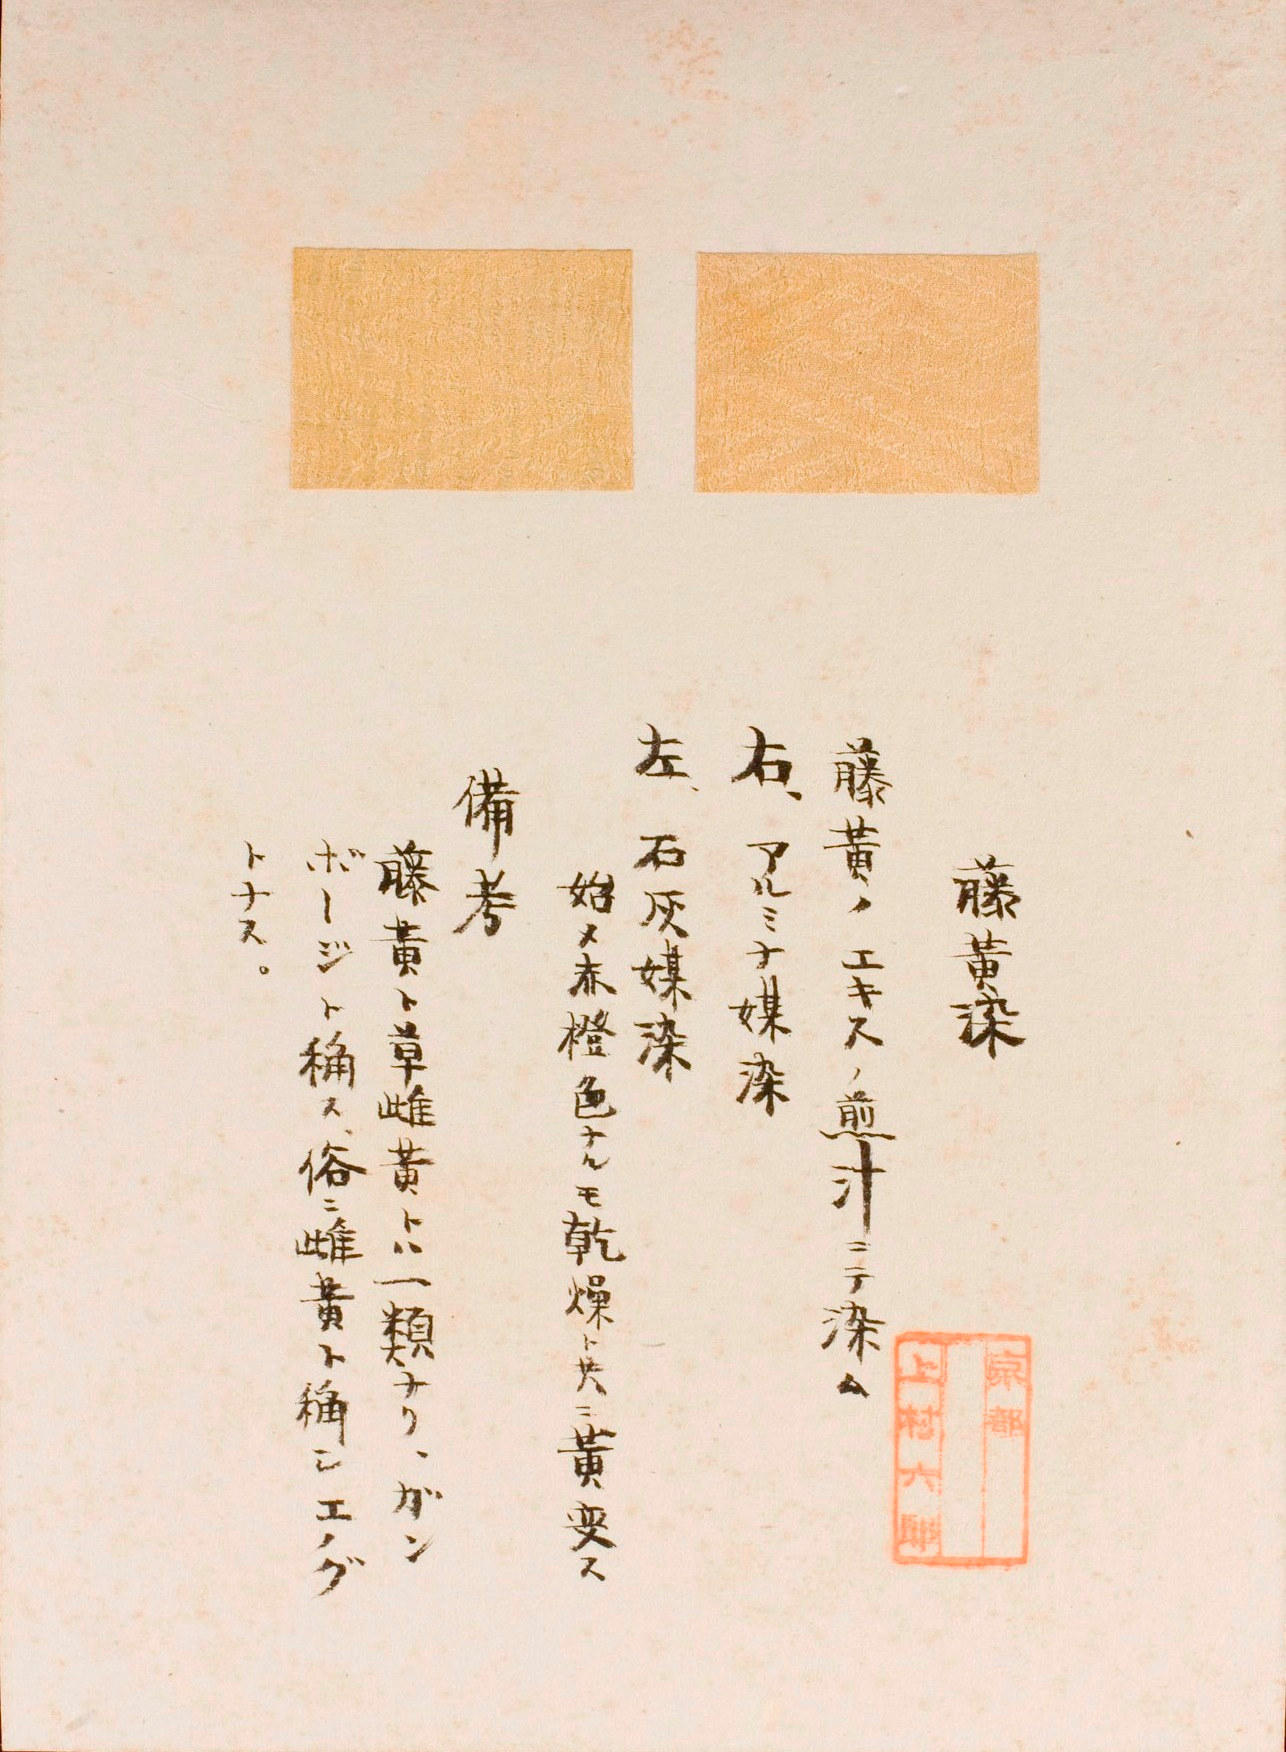 藤黄染
藤黄ノエキスノ煎汁ニテ染ム
右、アルミナ媒染
左、石灰媒染
始メ赤橙色ナルモ乾燥ト共ニ黄変ス
備考
藤黄ト草雌黄トハ一類ナリ、ガン
ボージト稱ス、俗ニ雌黄ト稱シエノグ
トナス。
京都
上村六郎